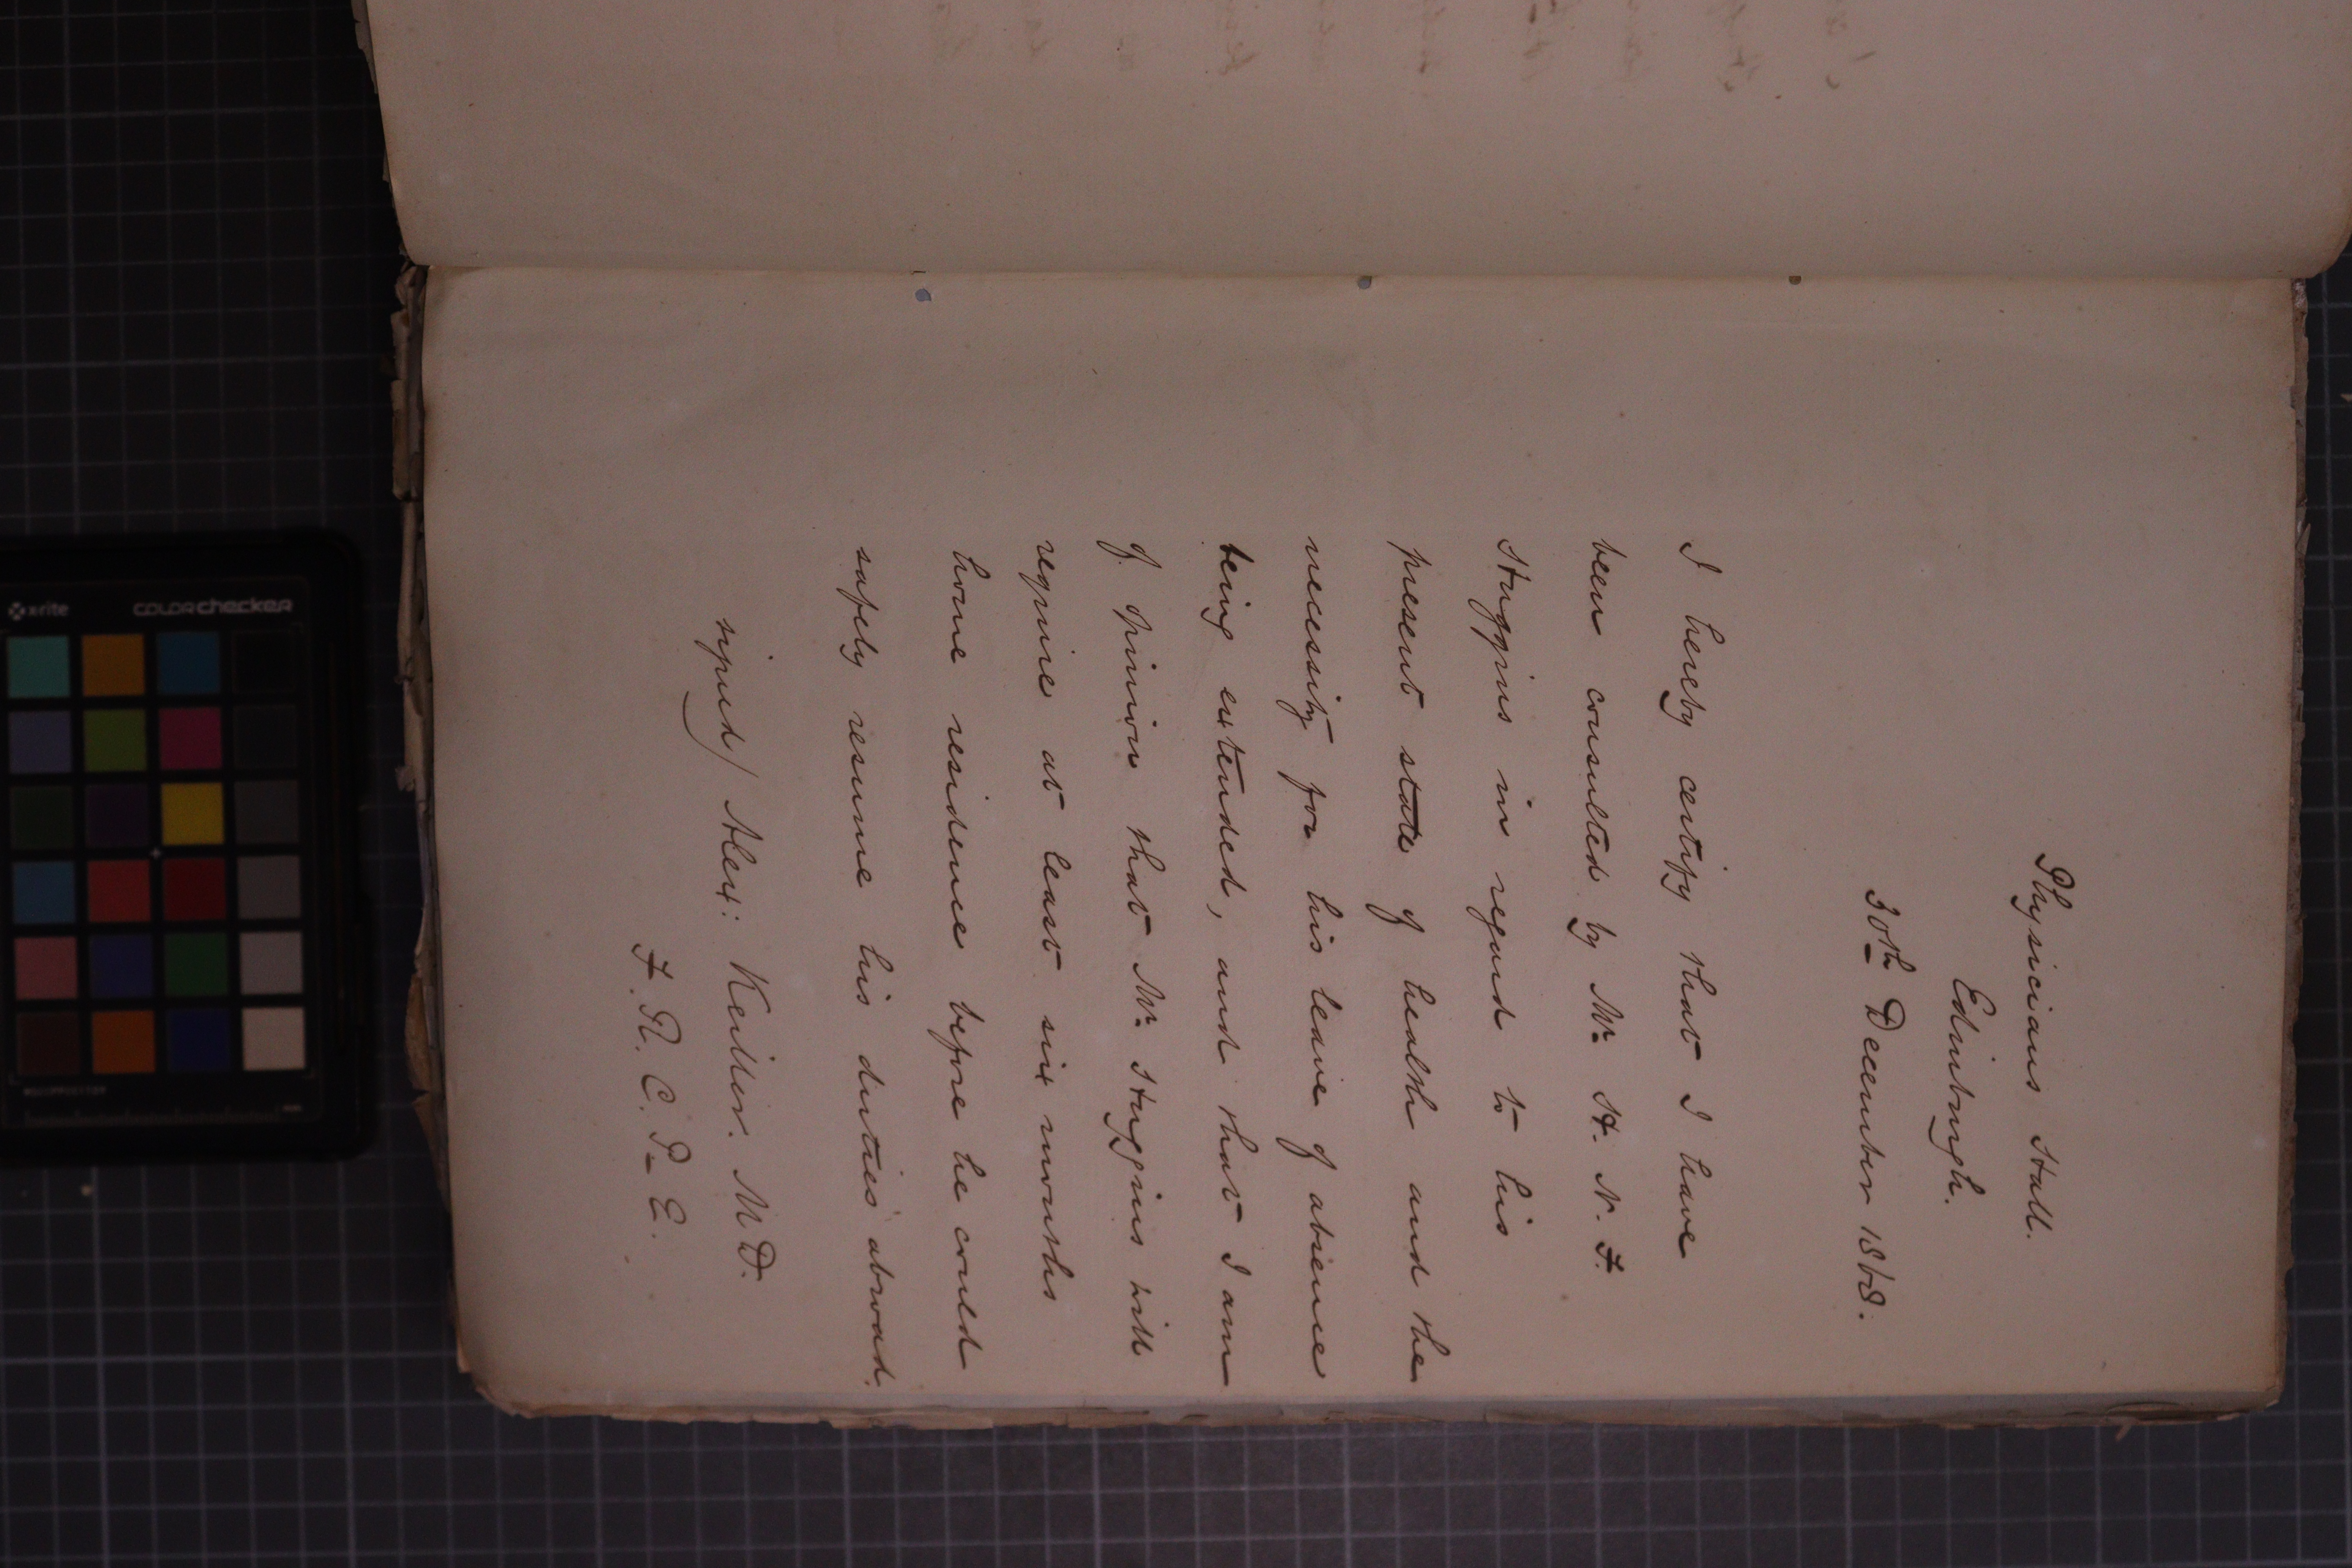 Physicians Hall.
Edinburgh.
30th December 1868.
I hereby certify that I have
been consulted by Mr. H. N. F.
Huggins in regard to his
present state of health and the
necessity for his leave of absence
being extended, and that I am
of opinion that Mr. Huggins will
require at least six months
home residence before he could
safely resume his duties abroad.
signed) Alex: Keiller. M.D.
F. R. C. P. E.
x-rite colorchecker